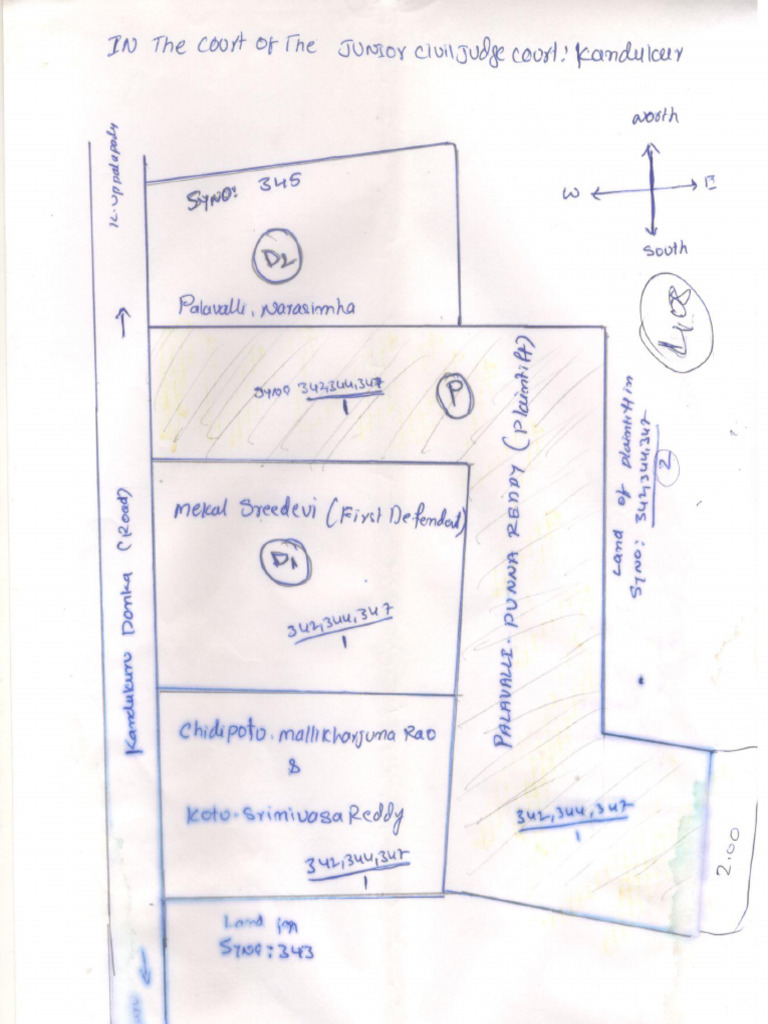 IN The court of The JUNIOR civil Judge court: Kandukur
North
W
E
South
K. uppalapadu
SYNO: 345
D2
Palavalli. Narasimha
SYNO 342,344,347
1
P
4.08
PALAVALLI. PUNNA REDDY (Plaintiff)
Land of plaintiff in
SYNO: 342,344,347
2
Kandukuru Donka (Road)
Mekal Sreedevi (First Defendant)
D1
342,344,347
1
Chidipotu. mallikharjuna Rao
&
Kotu. Srinivasa Reddy
342,344,347
1
342,344,347
1
2.00
Land in
SYNO: 343